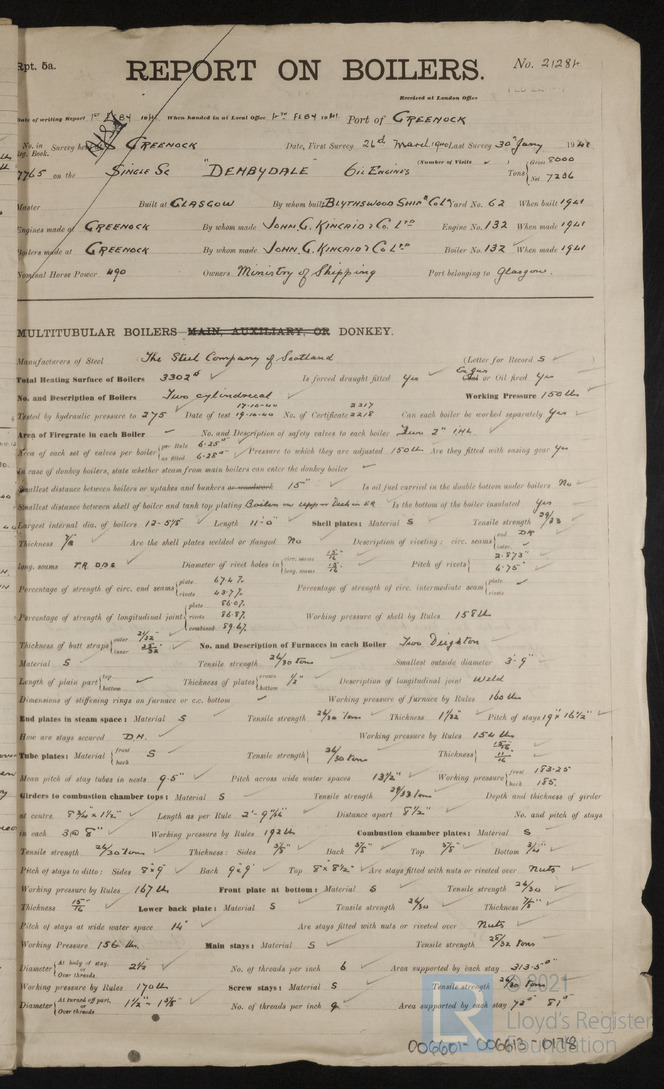 Rpt. 5a.
REPORT ON BOILERS.
No. 21284
Received at London Office
Date of writing Report 1st 19 When handed in at Local Office 19 Port of GREENOCK
No. in Reg. Book. Survey held at GREENOCK Date, First Survey 26th March 1940 Last Survey 30th Jany 19
7765 on the SINGLE SC "DENBYDALE" Oil Engines (Number of Visits ) Tons Gross 8000 Net 7236
Master Built at GLASGOW By whom built BLYTHSWOOD SHIPG Co Ltd Yard No. 62 When built 1941
Engines made at GREENOCK By whom made JOHN G. KINCAID & Co. LTD Engine No. 132 When made 1941
Boilers made at GREENOCK By whom made JOHN G. KINCAID & Co LTD Boiler No. 132 When made 1941
Nominal Horse Power 490 Owners Ministry of Shipping Port belonging to Glasgow.
MULTITUBULAR BOILERS MAIN, AUXILIARY, OR DONKEY.
Manufacturers of Steel The Steel Company of Scotland (Letter for Record S
Total Heating Surface of Boilers 3302 Is forced draught fitted Yes Coal or Oil fired Yes
No. and Description of Boilers Two cylindrical Working Pressure 150 lb
Tested by hydraulic pressure to 275 Date of test 17-10-40 19-10-40 No. of Certificate 2217 2218 Can each boiler be worked separately Yes
Area of Firegrate in each Boiler No. and Description of safety valves to each boiler Two 2"
Area of each set of valves per boiler per Rule 6.25" as fitted 6.28" Pressure to which they are adjusted 150 lb Are they fitted with easing gear Yes
In case of donkey boilers, state whether steam from main boilers can enter the donkey boiler
Smallest distance between boilers or uptakes and bunkers or woodwork 15" Is oil fuel carried in the double bottom under boilers No
Smallest distance between shell of boiler and tank top plating Boilers on upper Deck in ER Is the bottom of the boiler insulated Yes
Largest internal dia. of boilers 12-5 5/8 Length 11'-0" Shell plates: Material S Tensile strength 29/33
Thickness 7/8 Are the shell plates welded or flanged No Description of riveting: circ. seams end DR inter.
long. seams TR DBS Diameter of rivet holes in circ. seams 15/16 long. seams 15/16 Pitch of rivets 2.873" 6.75"
Percentage of strength of circ. end seams plate 67.4% rivets 43.7% Percentage of strength of circ. intermediate seam plate rivets
Percentage of strength of longitudinal joint plate 86.0% rivets 86.8% combined 89.6% Working pressure of shell by Rules 158 lb
Thickness of butt straps outer 21/32 inner 25/32 No. and Description of Furnaces in each Boiler Two Deighton
Material S Tensile strength 26/30 tons Smallest outside diameter 3'-9"
Length of plain part top bottom Thickness of plates crown bottom 1/2" Description of longitudinal joint Weld
Dimensions of stiffening rings on furnace or c.c. bottom Working pressure of furnace by Rules 160 lb
End plates in steam space: Material S Tensile strength 26/30 tons Thickness 1 1/32 Pitch of stays 19" x 16 1/2"
How are stays secured D.N. Working pressure by Rules 154 lb
Tube plates: Material front back S Tensile strength 26/30 tons Thickness 15/16 11/16
Mean pitch of stay tubes in nests 9.5" Pitch across wide water spaces 13 1/2" Working pressure front 183.25 back 185.
Girders to combustion chamber tops: Material S Tensile strength 29/33 tons Depth and thickness of girder
at centre 8 3/4 x 1 1/2" Length as per Rule 2'-9 7/16" Distance apart 8 1/2" No. and pitch of stays
in each 3 @ 8" Working pressure by Rules 192 lb Combustion chamber plates: Material S
Tensile strength 26/30 tons Thickness: Sides 5/8" Back 5/8" Top 5/8" Bottom 3/4"
Pitch of stays to ditto: Sides 8"x9" Back 9"x9" Top 8"x8 1/2" Are stays fitted with nuts or riveted over Nuts
Working pressure by Rules 167 lb Front plate at bottom: Material S Tensile strength 26/30
Thickness 15/16 Lower back plate: Material S Tensile strength 26/30 Thickness 7/8"
Pitch of stays at wide water space 14" Are stays fitted with nuts or riveted over Nuts
Working Pressure 156 lb. Main stays: Material S Tensile strength 28/32 tons
Diameter At body of stay, or Over threads 2 1/2 No. of threads per inch 6 Area supported by each stay 313.5"
Working pressure by Rules 170 lb Screw stays: Material S Tensile strength 26/30 tons
Diameter At turned off part, or Over threads 1 1/2" - 1 5/8" No. of threads per inch 9 Area supported by each stay 72" 81"
© 2021
Lloyd's Register
Foundation
006601-006613-0178